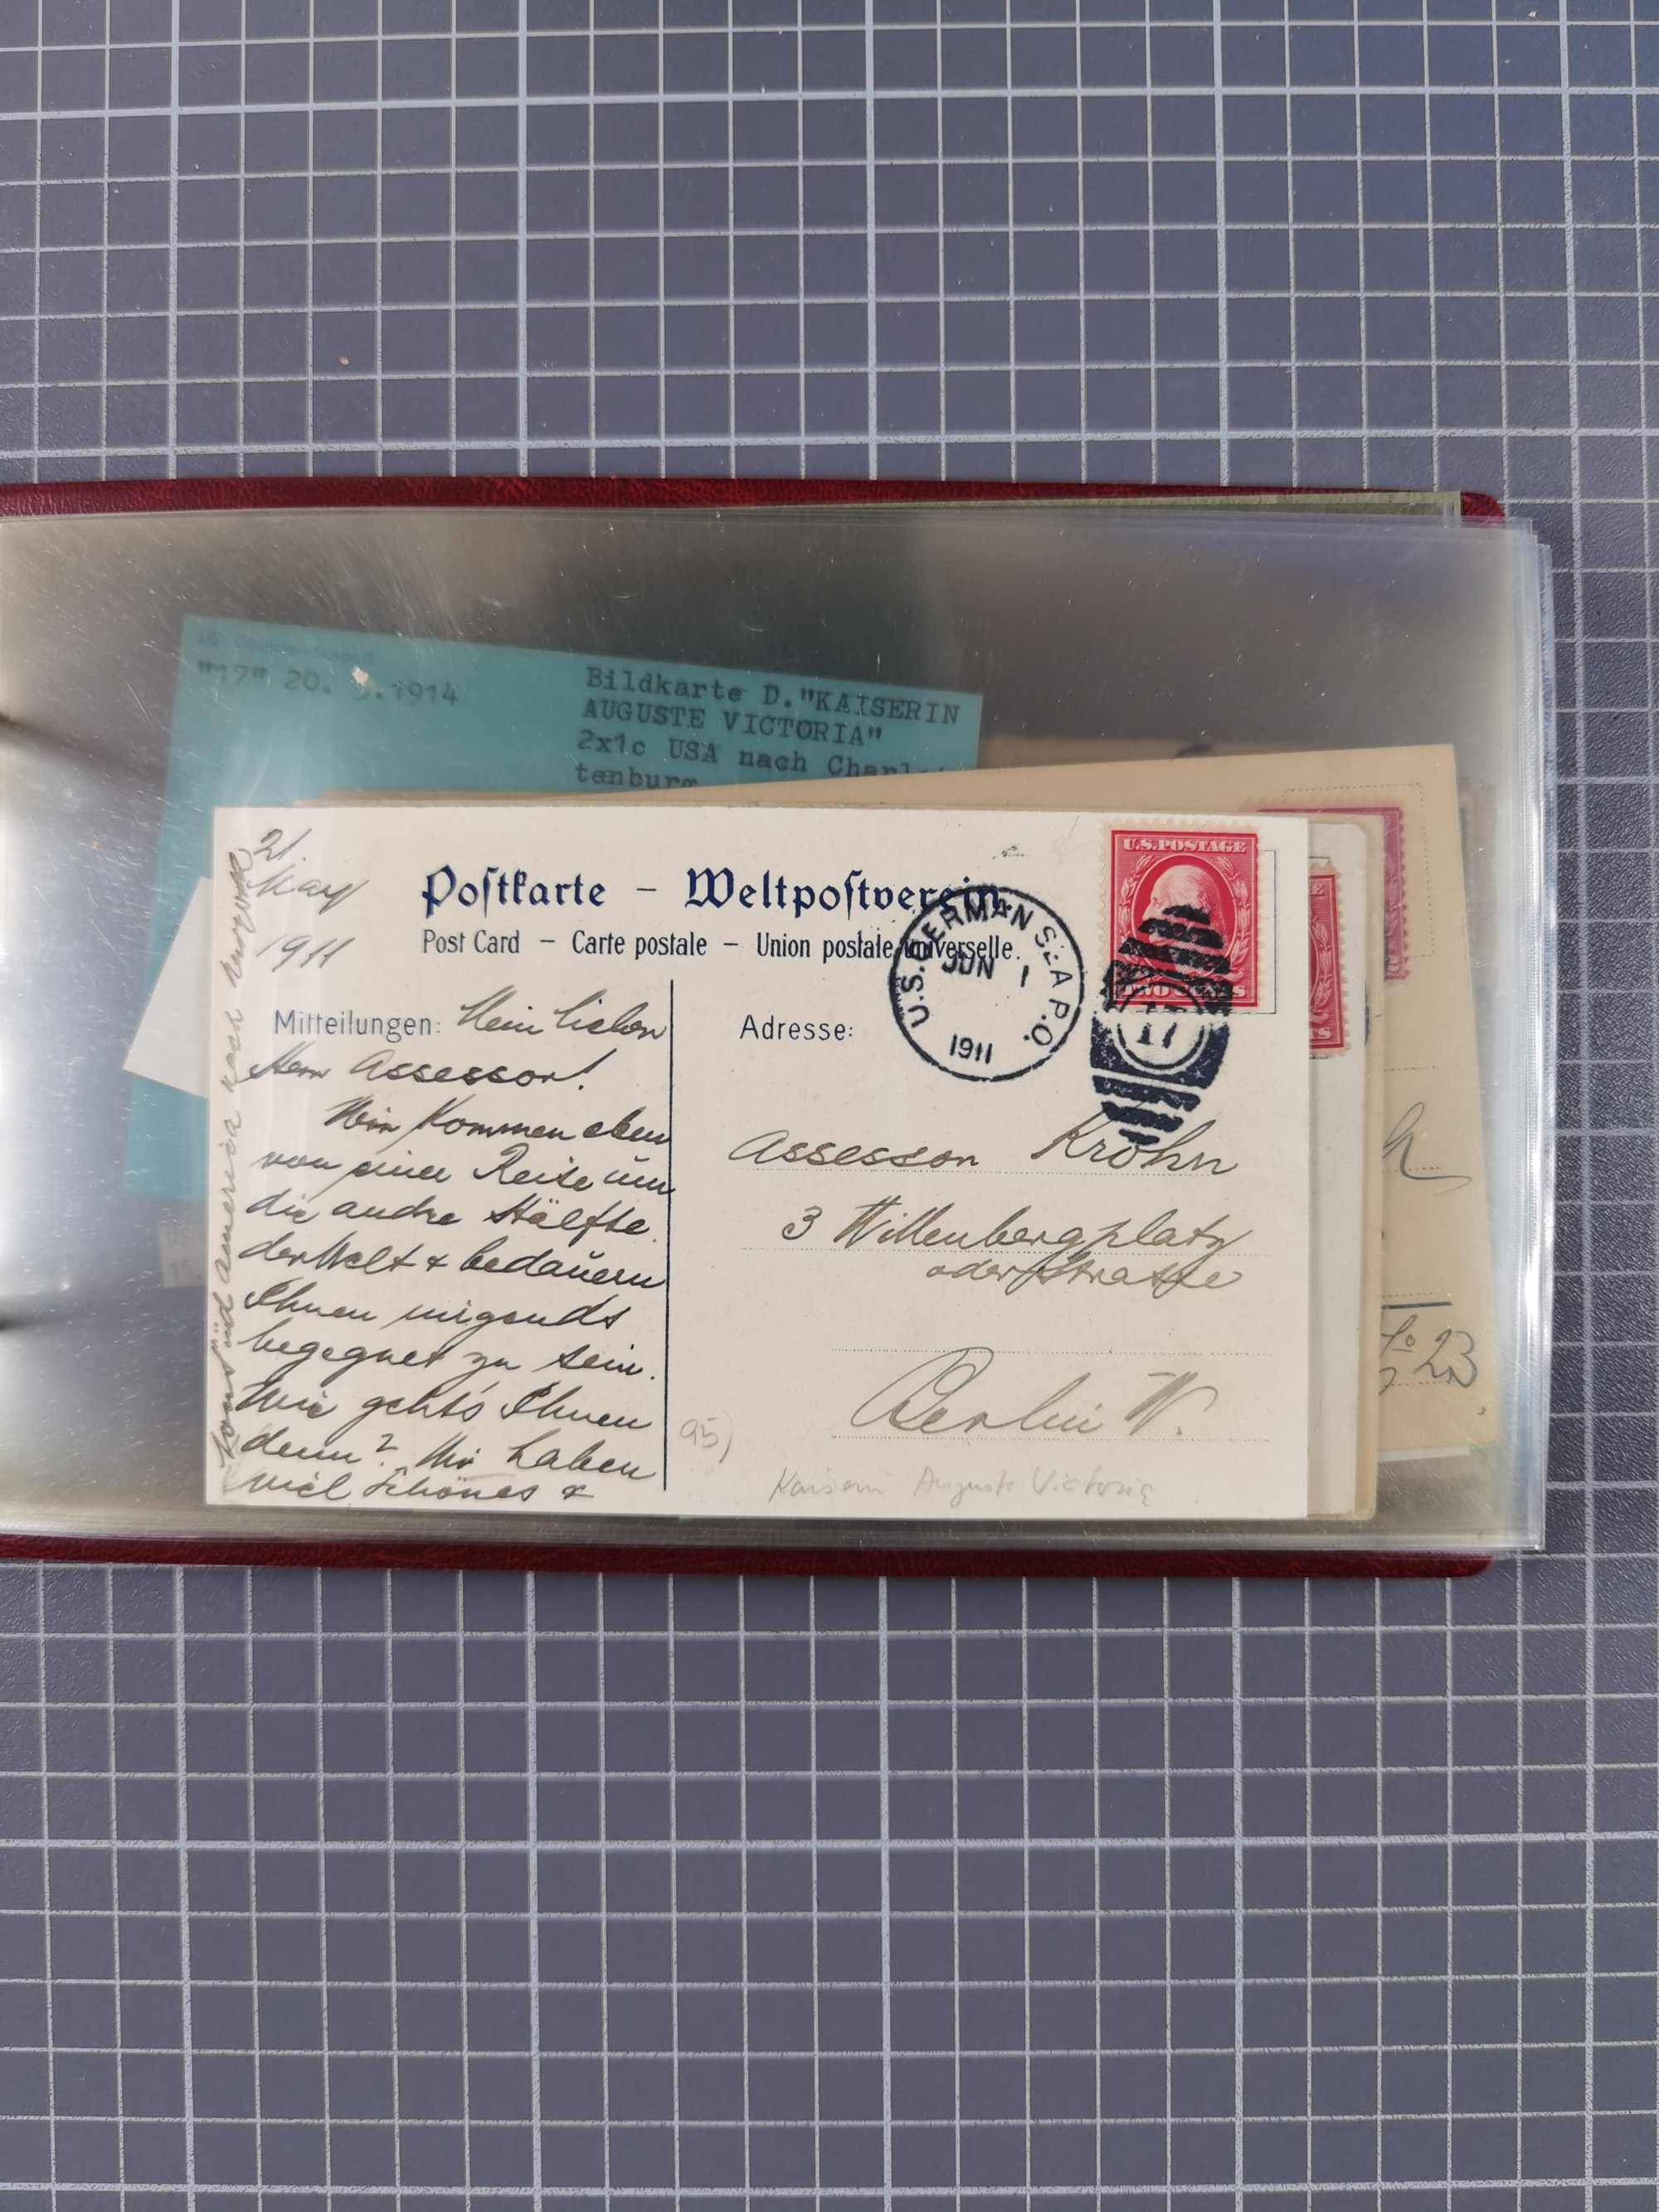 "17" 20. .1914
Bildkarte D."KAISERIN
AUGUSTE VICTORIA"
2x1c USA nach
tenburg
21.
May
1911
Postkarte – Weltpostverein.
Post Card – Carte postale – Union postale universelle.
U.S. GERMAN SEA P.O.
JUN 1
1911
U.S. POSTAGE
TWO CENTS
17
Mitteilungen: Mein lieber
Herr Assessor!
Wir kommen eben
von einer Reise um
die andre Hälfte
der Welt & bedauern
Ihnen nirgends
begegnet zu sein.
Wie geht's Ihnen
denn? Wir haben
viel Schönes &
america nach
Adresse:
Assessor Krohn
3 Wittenbergplatz
oder Strasse
Berlin W.
95)
Kaiserin Auguste Victoria
23